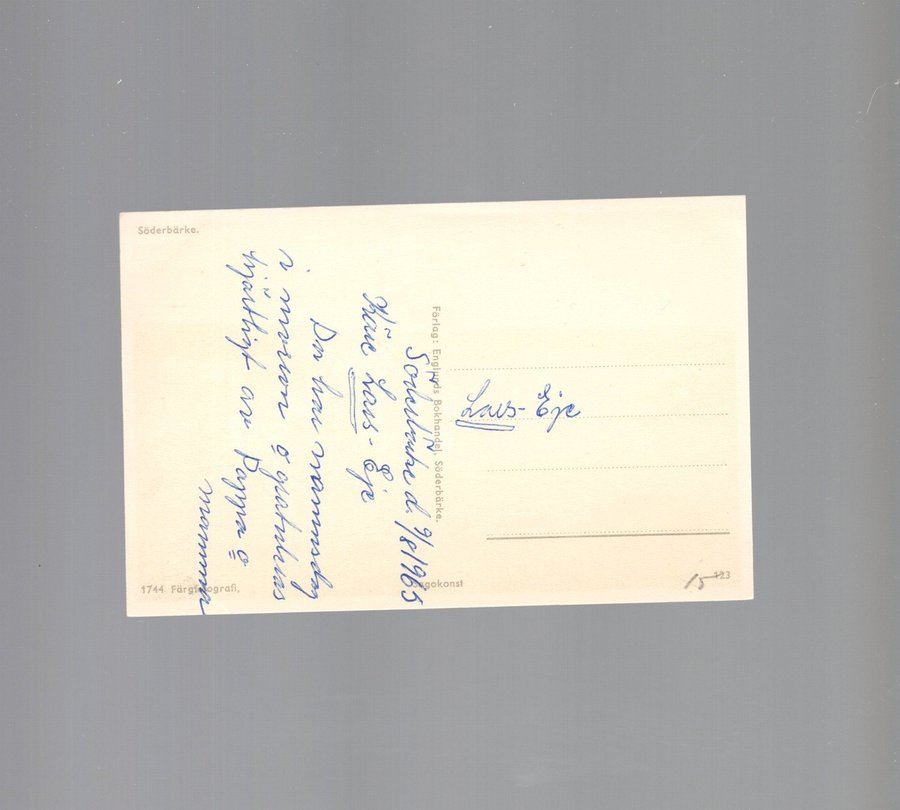 Söderbärke.
Söderbärke d. 9/8 1965
Käre Lars-Eje
Du har namnsdag
i morron o gratuleras
hjärtligt av Pappa o
mamma
Förlag: Englunds Bokhandel, Söderbärke.
Lars-Eje
1744 Färgfotografi,
Sagokonst
15
123